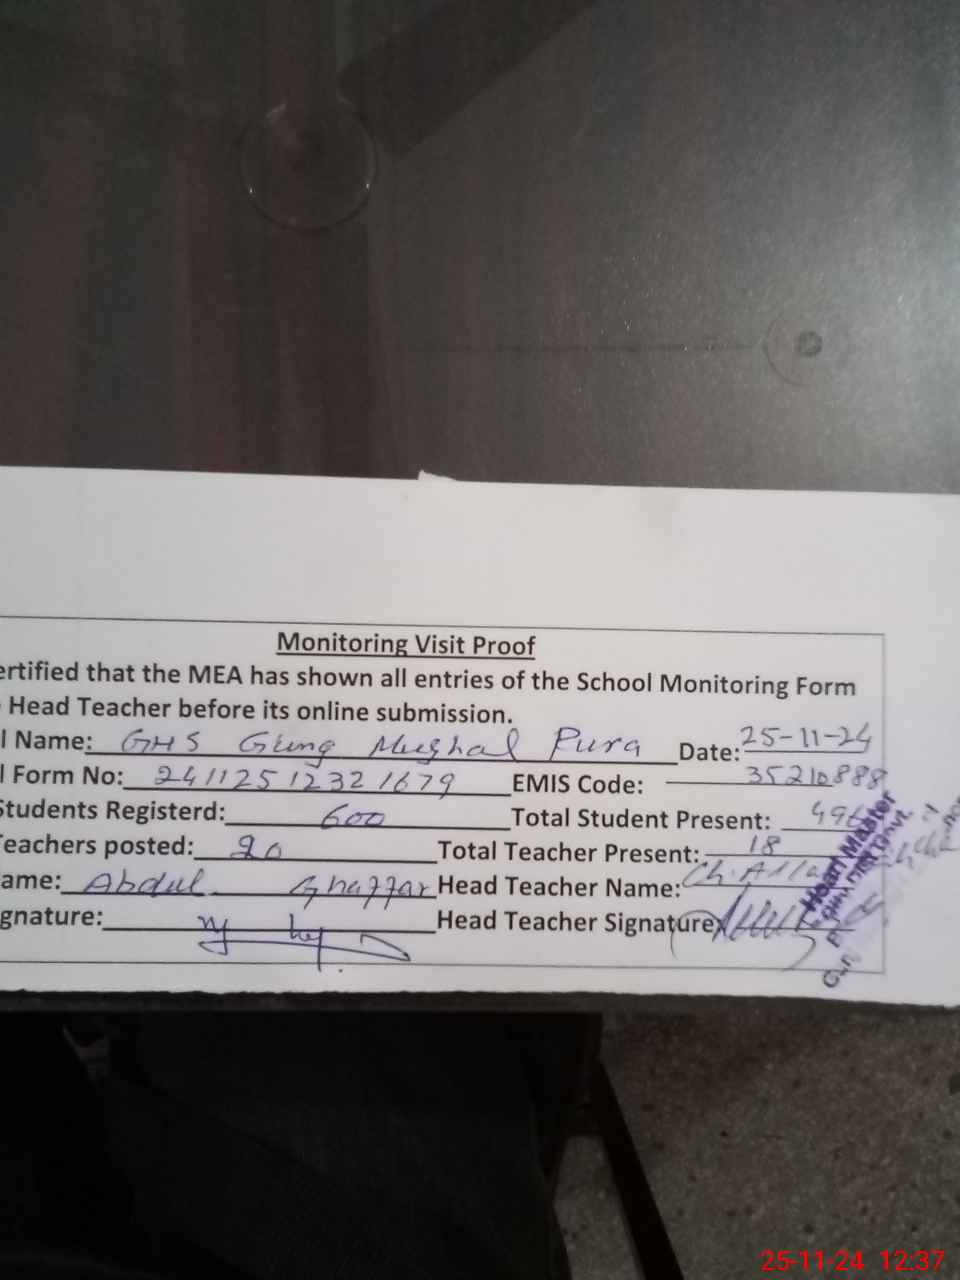 Monitoring Visit Proof
ertified that the MEA has shown all entries of the School Monitoring Form
Head Teacher before its online submission.
l Name: GHS Gung Mughal Pura Date: 25-11-24
l Form No: 2411251232 1679 EMIS Code: 35210888
Students Registerd: 600 Total Student Present: 496
Teachers posted: 20 Total Teacher Present: 18
ame: Abdul Ghaffar Head Teacher Name: Ch.
gnature: Head Teacher Signature
Head Master
25-11-24 12:37